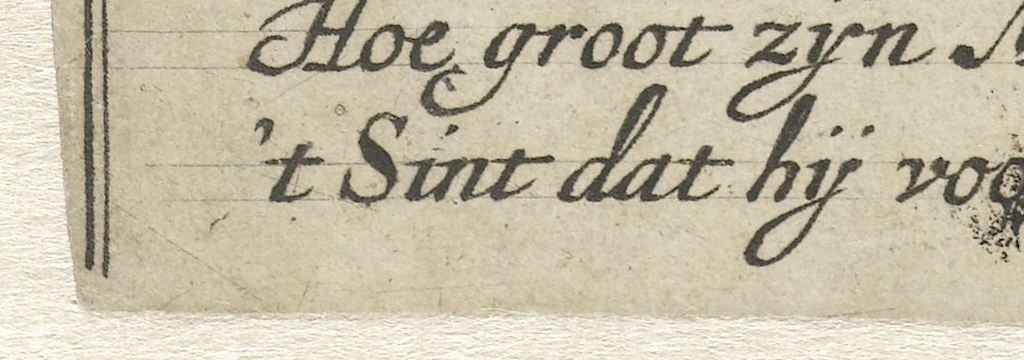 Hoe groot zyn
't Sint dat hij